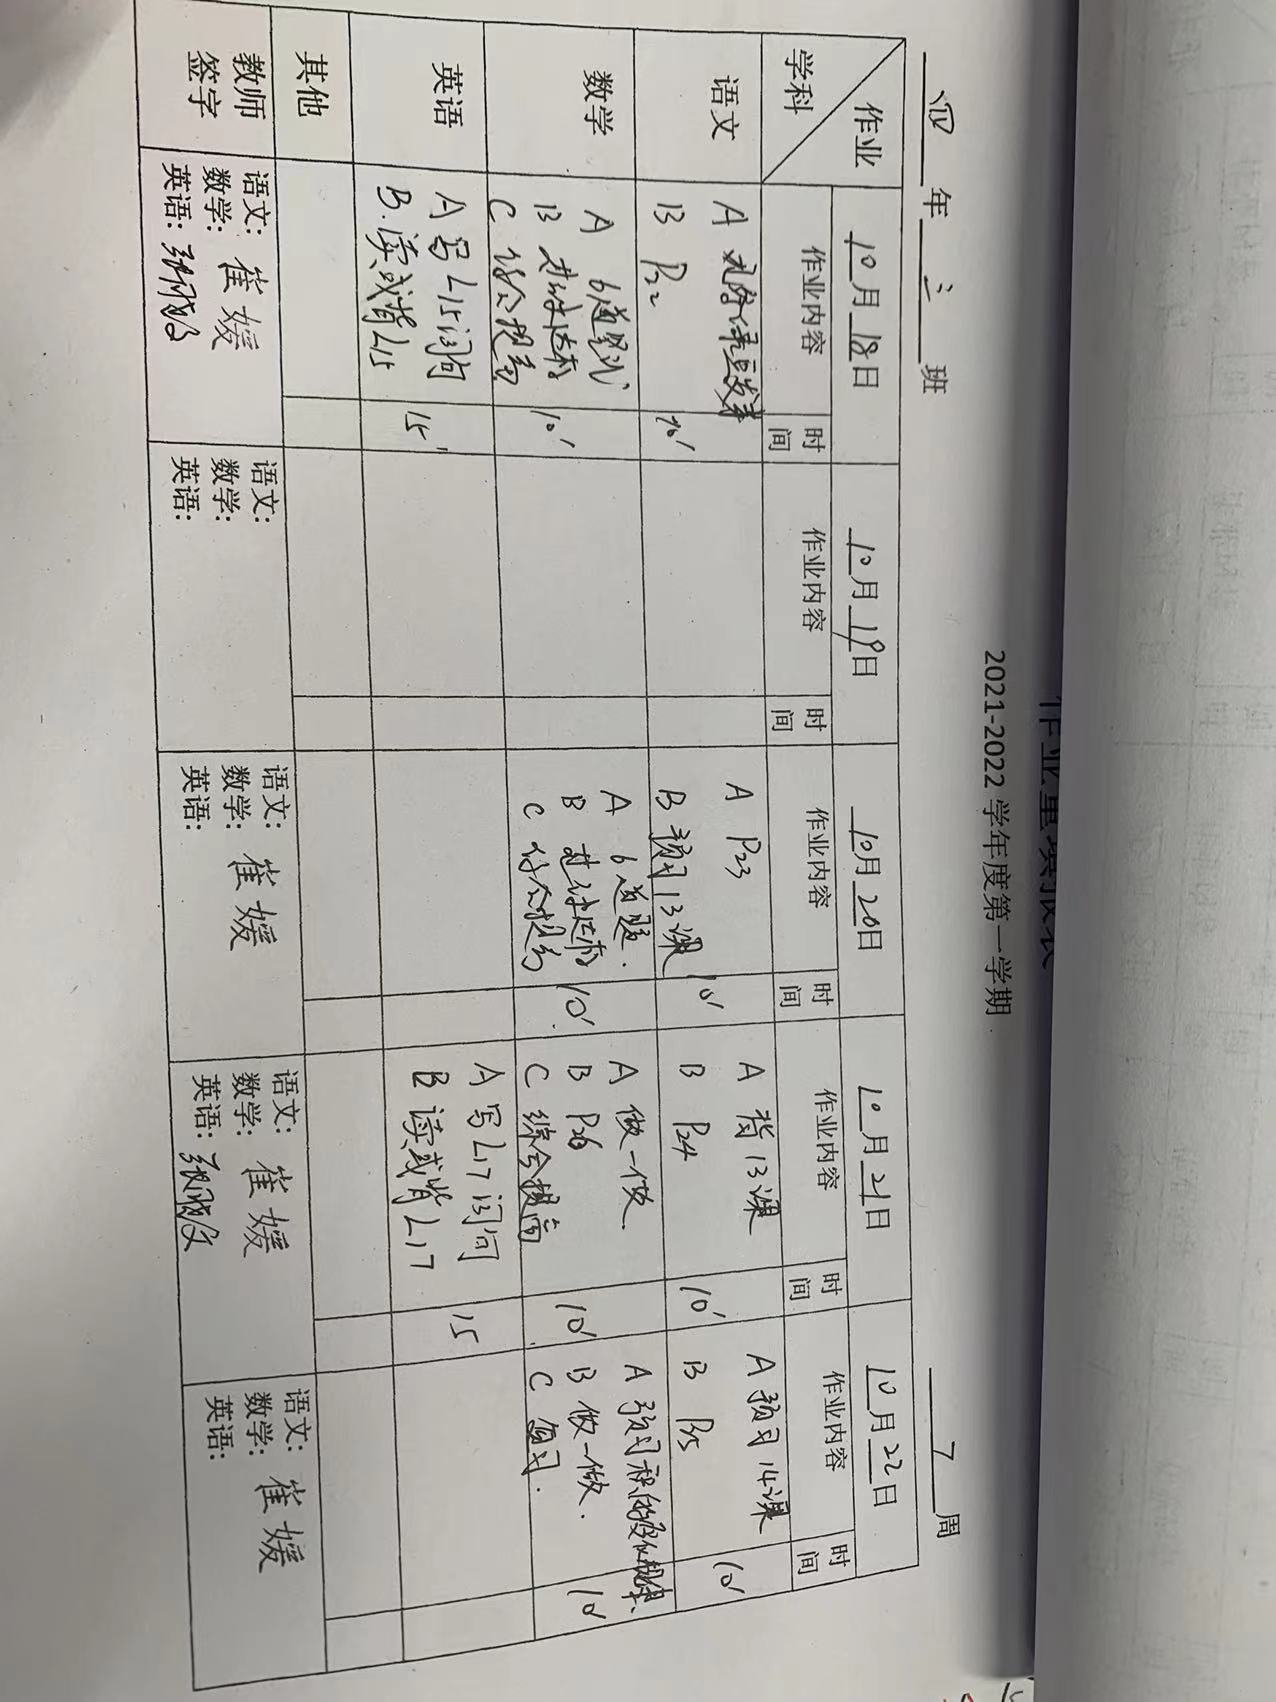 作业量填报表
2021-2022 学年度第一学期
四 年 三 班
7 周
作业
学科
10月18日
10月19日
10月20日
10月21日
10月22日
作业内容
时间
作业内容
时间
作业内容
时间
作业内容
时间
作业内容
时间
语文
A 观察绿豆发芽
B P22
10'
A P23
B 预习13课
10'
A 背13课
B P24
10'
A 预习14课
B P25
10'
数学
A 6道竖式
B 基础达标
C 综合提高
10'
A 6道题.
B 基础达标
C 综合提高
10'
A 做一做.
B P26
C 综合提高
10'
A 预习积的变化规律.
B 做一做.
C 复习.
10'
英语
A 写L15词句
B.读或背L15
15'
A 写L17词句
B 读或背L17
15
其他
教师
签字
语文:
数学: 崔媛
英语:
语文:
数学:
英语:
语文:
数学: 崔媛
英语:
语文:
数学: 崔媛
英语:
语文:
数学: 崔媛
英语: